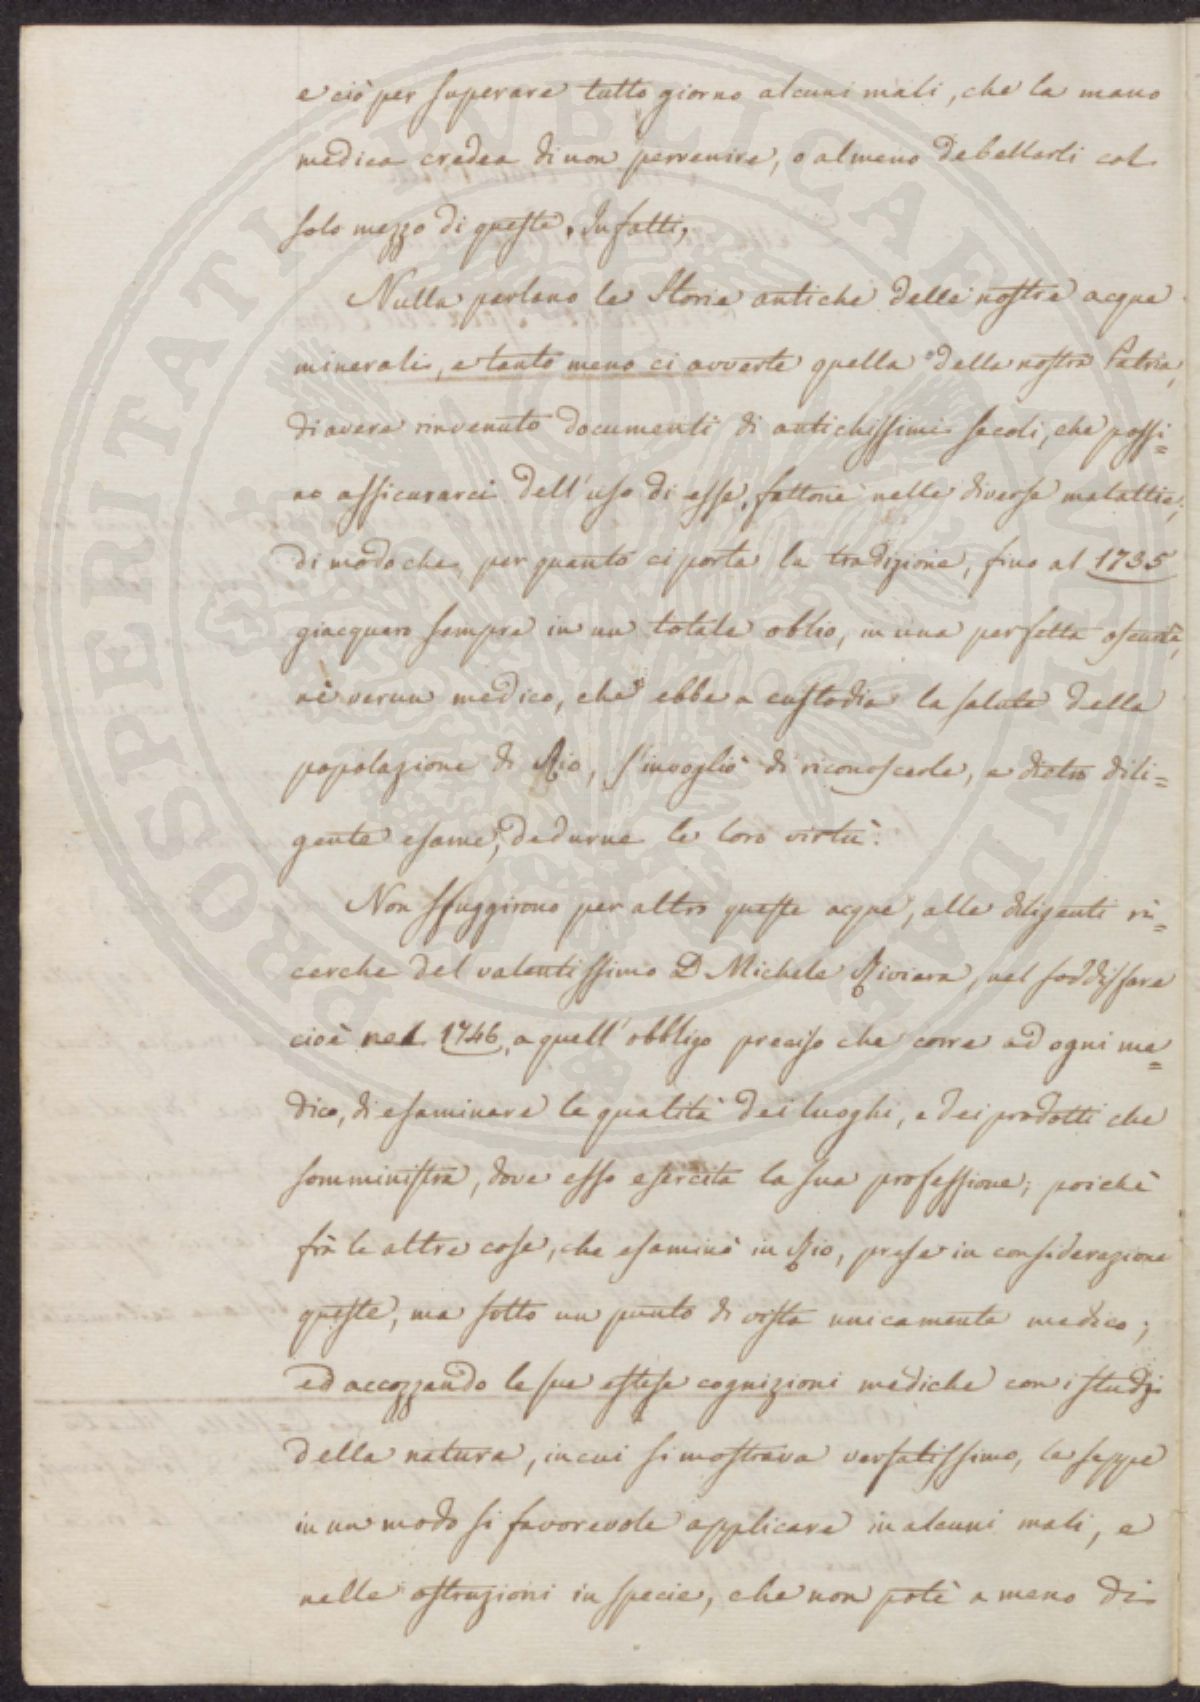 e ciò per superare tutto giorno alcuni mali, che la mano
medica credea di non pervenire, o almeno debellarli col
solo mezzo di queste. Infatti,
Nulla parlano le Storie antiche delle nostre acque
minerali, e tanto meno ci avverte quella della nostra Patria,
di avere rinvenuto documenti di antichissimi secoli, che possi=
no assicurarci dell'uso di esse, fattone nelle diverse malattie;
di modo che, per quanto ci porta la tradizione, fino al 1735
giacquero sempre in un totale oblio, in una perfetta oscurità,
nè verun medico, che ebbe a custodia la salute della
popolazione di Rio, s'invogliò di riconoscerle, e dietro dili=
gente esame, dedurne le loro virtù.
Non sfuggirono per altro queste acque, alle diligenti ri=
cerche del valentissimo D. Michele Riviera, nel soddisfare
cioè nel 1746, a quell'obbligo preciso che corre ad ogni me=
dico, di esaminare le qualità dei luoghi, e dei prodotti che
somministra, dove esso esercita la sua professione; poichè
frà le altre cose, che esaminò in Rio, prese in considerazione
queste, ma sotto un punto di vista unicamente medico;
ed accozzando le sue estese cognizioni mediche con i studj
della natura, in cui si mostrava versatissimo, le seppe
in un modo si favorevole applicare in alcuni mali, e
nelle ostruzioni in specie, che non potè a meno di
PROSPERITATI PVBLICAE AVGENDAE